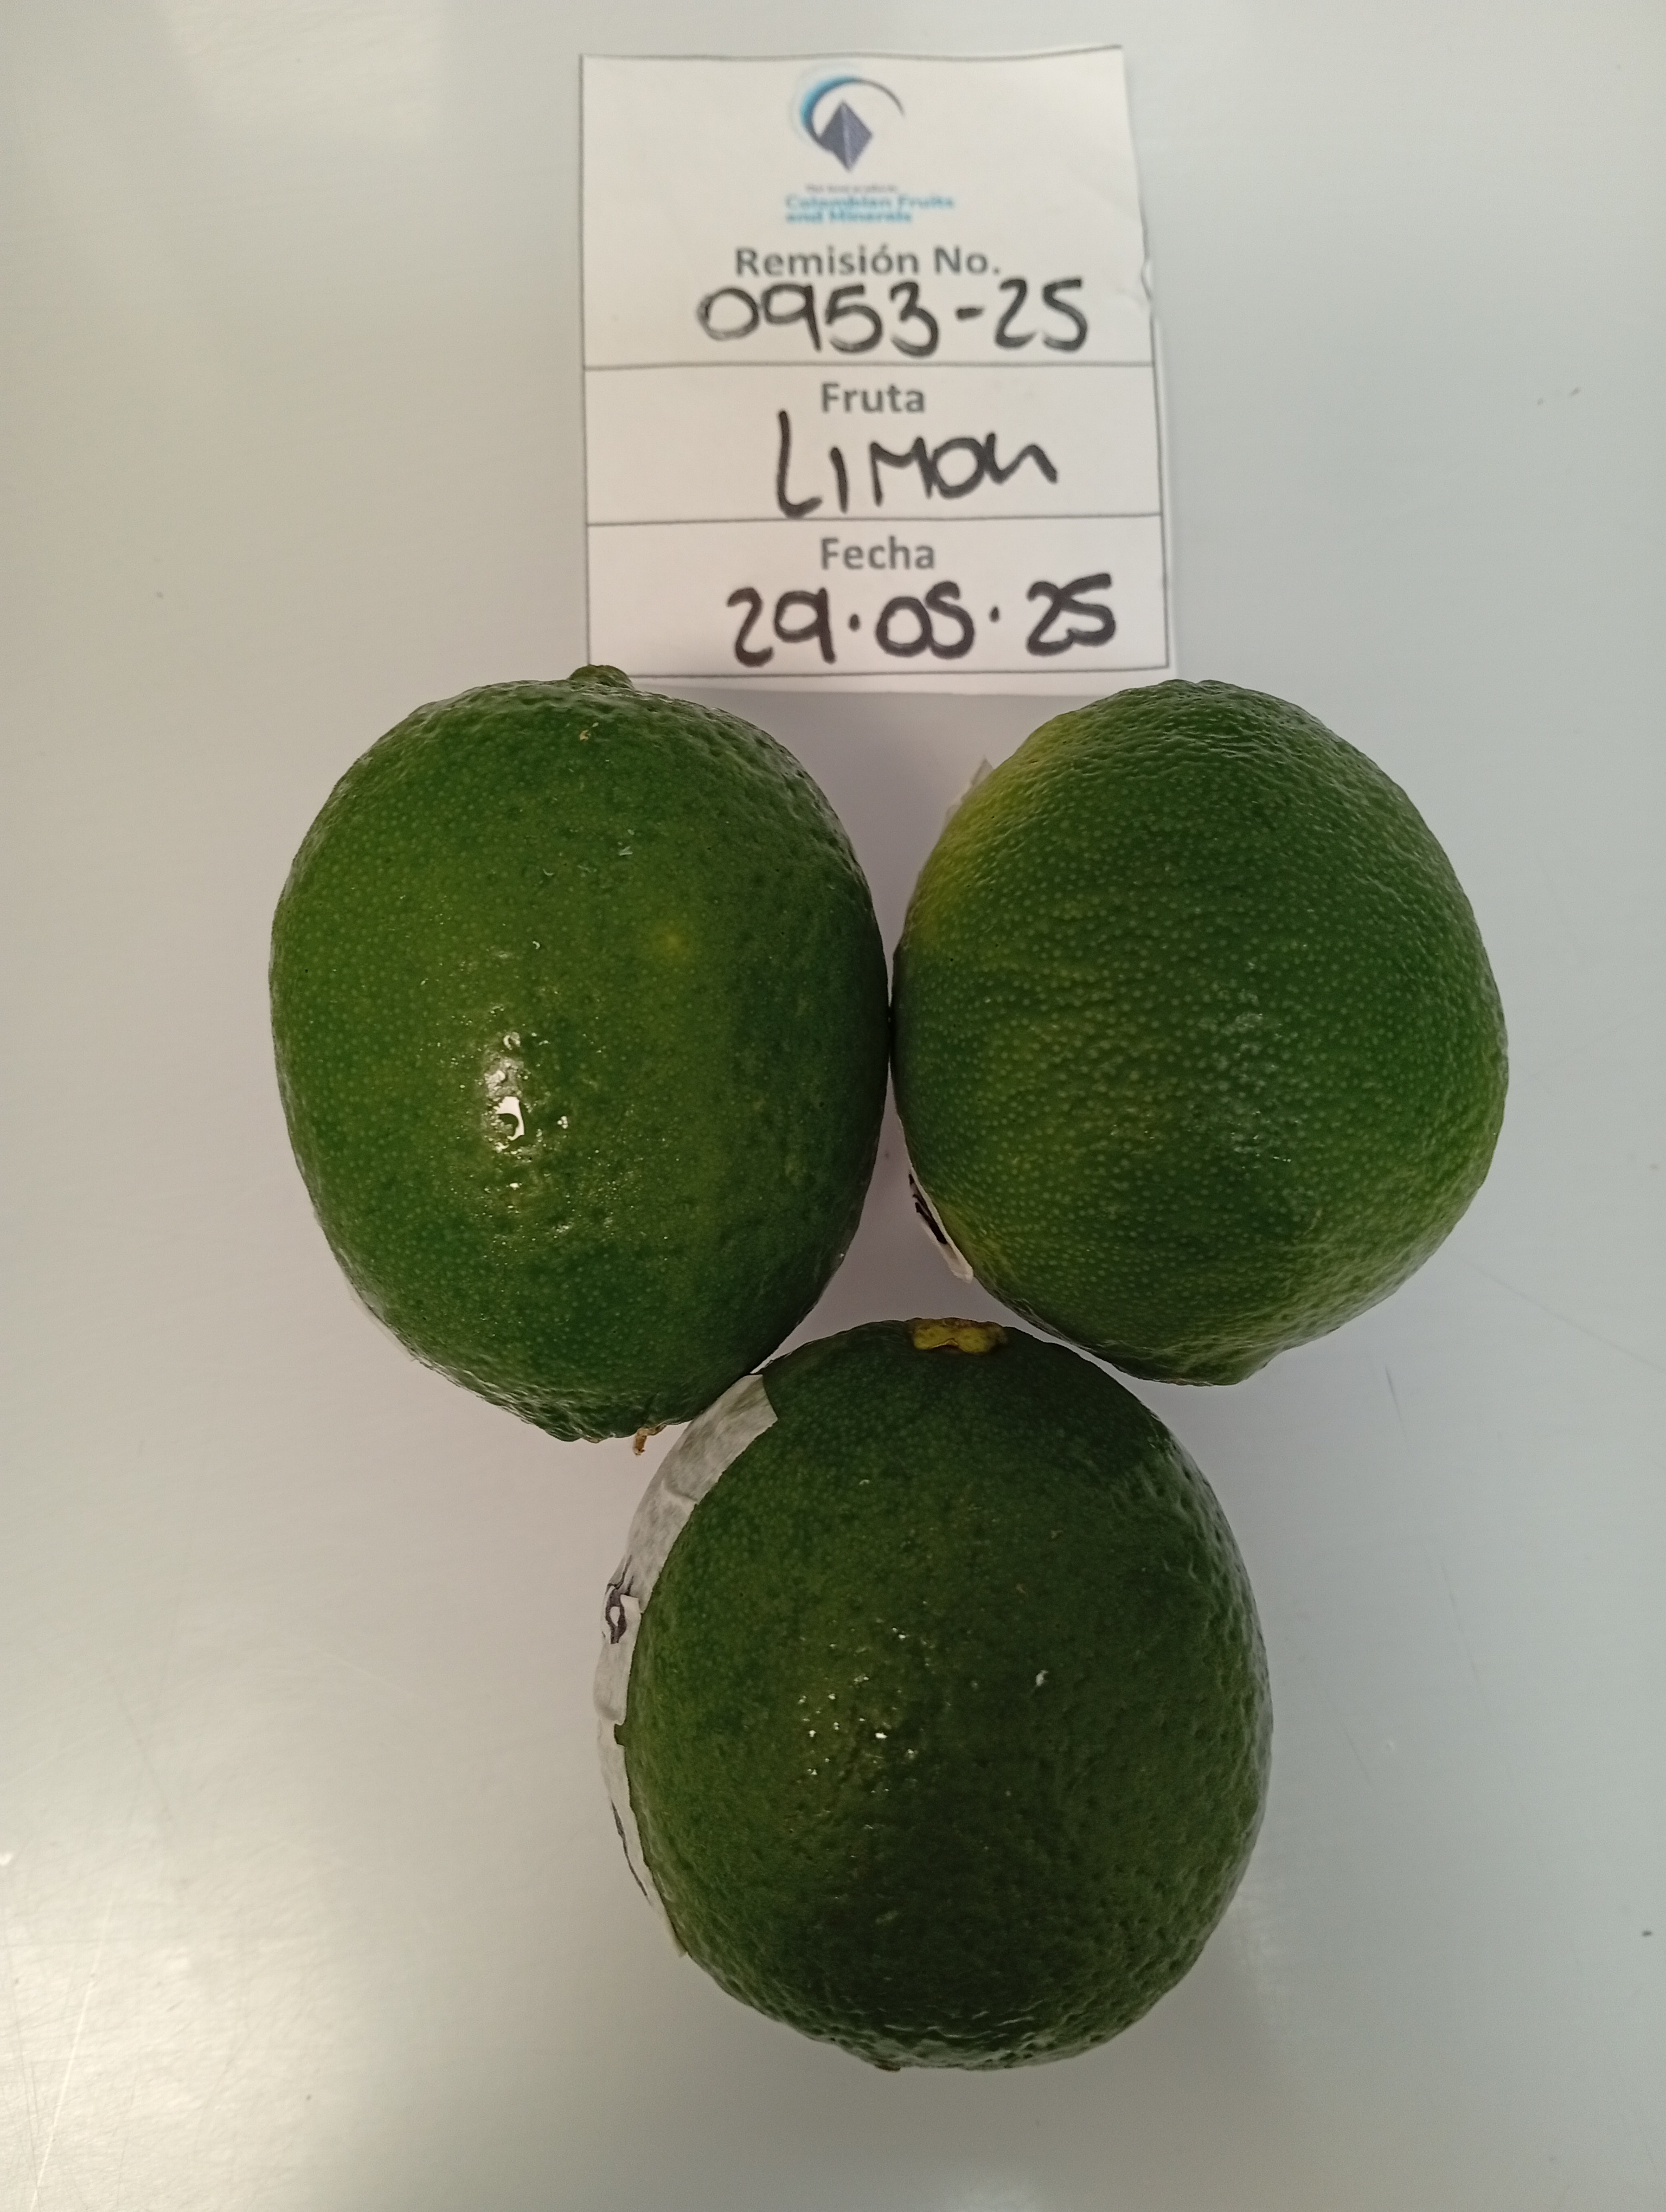 Colombian Fruits
and Minerals
Remisión No.
0953-25
Fruta
LIMON
Fecha
29.05.25